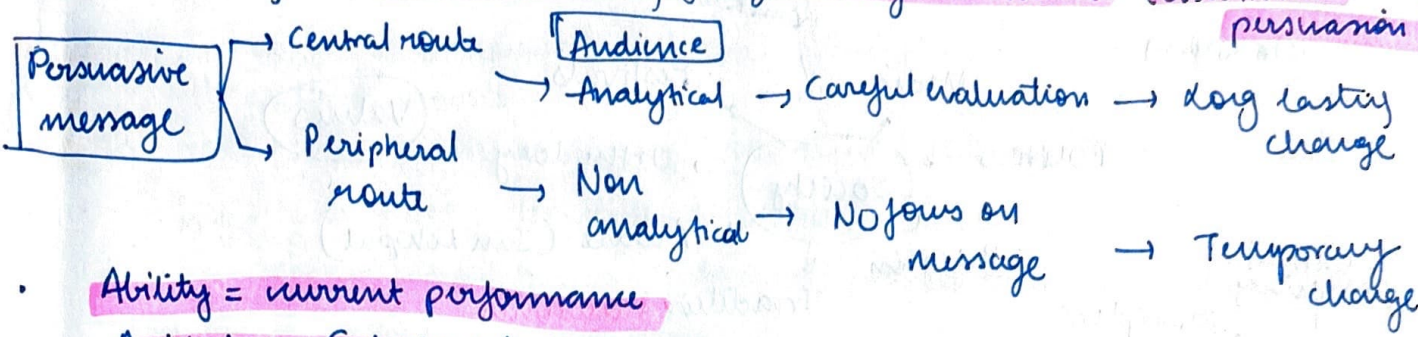 persuasion
Persuasive
message
→ Central route
Audience
→ Analytical → Careful evaluation → Long lasting
change
→ Peripheral
route
→ Non
analytical → No focus on
message
→ Temporary
change
• Ability = current performance